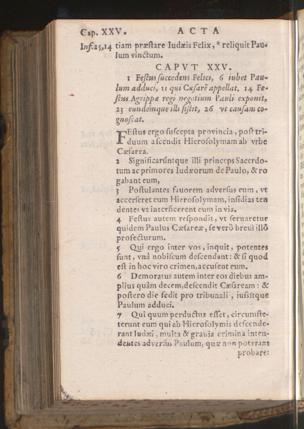 Cap. XXV. ACTA
Inf. 25,14 tiam præstare Iudæis Felix, * reliquit Pau-
lum vinctum.
CAPVT XXV.
1 Festus succedens Felici, 6 iubet Pau-
lum adduci, 11 qui Cæsarẽ appellat, 14 Fe-
stus Agrippæ regi negotium Pauli exponit,
23 eundemque illi sistit, 26 vt causam co-
gnoscat.
FEstus ergo suscepta prouincia, post tri-
duum ascendit Hierosolymam ab vrbe
Cæsarea.
2 Significarúntque illi princeps Sacerdo-
tum ac primores Iudæorum de Paulo, & ro
gabant eum,
3 Postulantes fauorem aduersus eum, vt
accerseret eum Hierosolymam, insidias ten
dentes vt interficerent eum in via.
4 Festus autem respondit, vt seruaretur
quidem Paulus Cæsareæ, se verò breui illò
profecturum.
5 Qui ergo inter vos, inquit, potentes
sunt, vnà nobiscum descendant: & si quod
est in hoc viro crimen, accusent eum.
6 Demoratus autem inter eos diebus am-
plius quàm decem, descendit Cæsaream: &
postero die sedit pro tribunali, iussitque
Paulum adduci.
7 Qui quum perductus esset, circunste-
terunt eum qui ab Hierosolymis descende-
rant Iudæi, multa & grauia crimina inten-
dentes aduersus Paulum, quæ non poterant
probare: